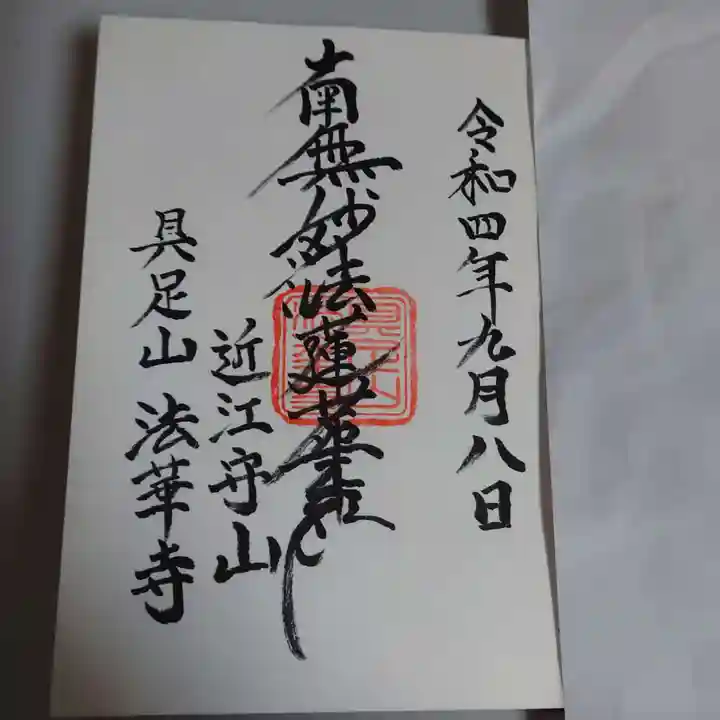 令和四年九月八日
南無妙法蓮華経
近江守山
具足山 法華寺